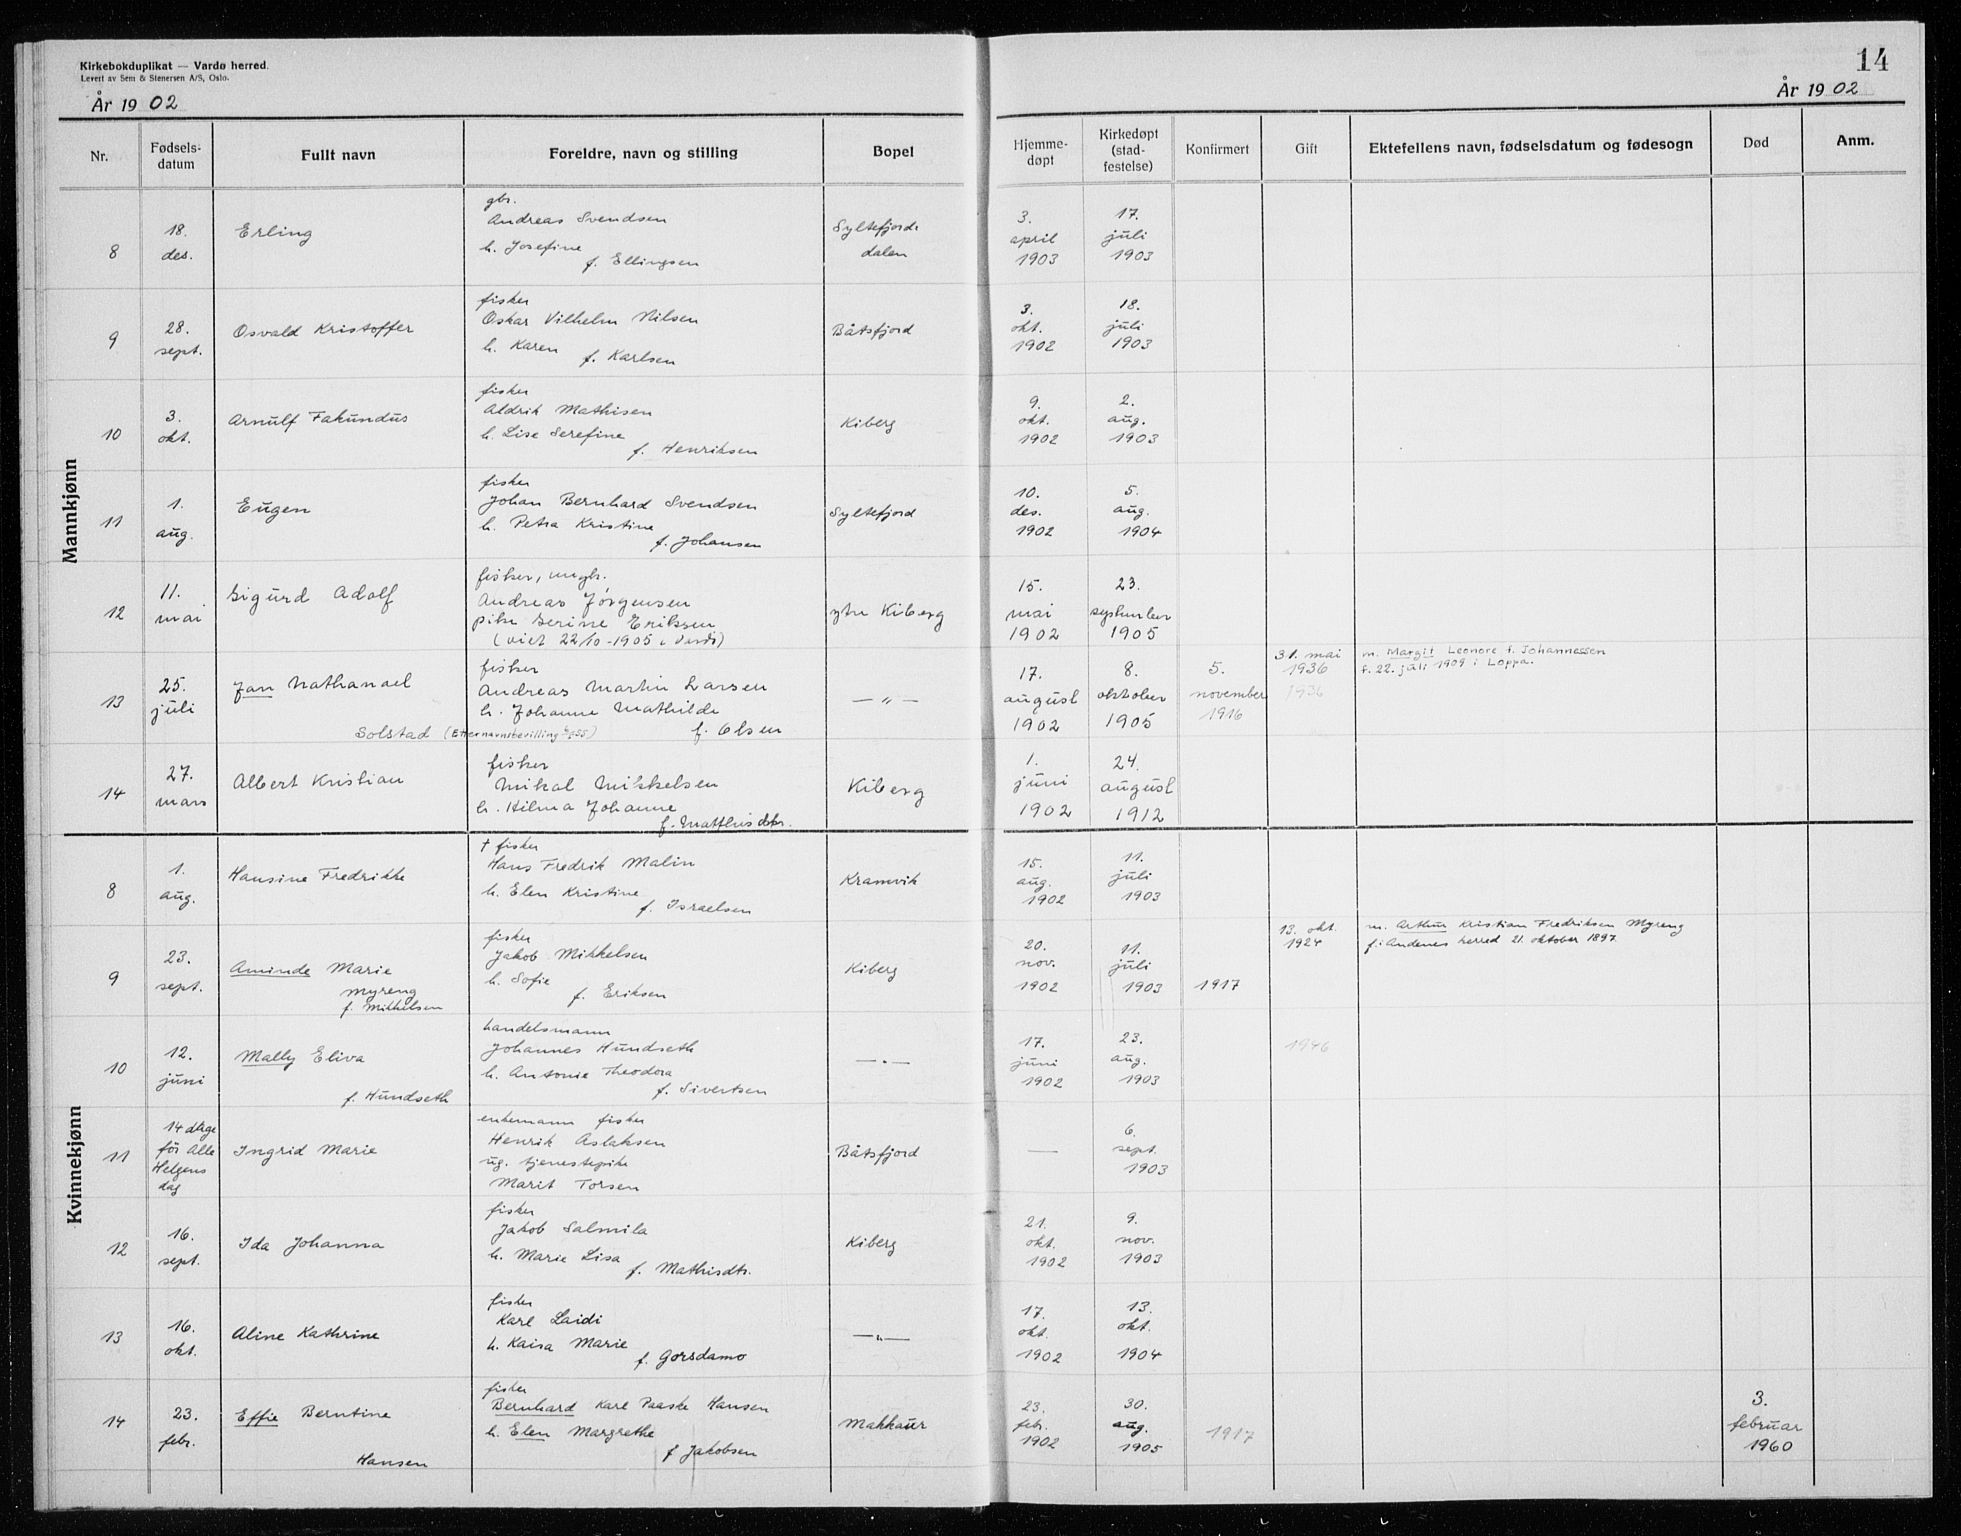 Kirkebokduplikat — Vardø herred.
Levert av Sem & Stenersen A/S, Oslo.
År 1902
14
År 1902
Nr.
Fødsels-
datum
Fullt navn
Foreldre, navn og stilling
Bopel
Hjemme-
døpt
Kirkedøpt
(stad-
festelse)
Konfirmert
Gift
Ektefellens navn, fødselsdatum og fødesogn
Død
Anm.
Mannkjønn
8
18.
des.
Erling
gbr.
Andreas Svendsen
h. Josefine
f. Ellingsen
Syltefjord-
dalen
3.
april
1903
17.
juli
1903
9
28.
sept.
Osvald Kristoffer
fisker
Oskar Vilhelm Nilsen
h. Karen
f. Karlsen
Båtsfjord
3.
okt.
1902
18.
juli
1903
10
3.
okt.
Arnulf Fakundus
fisker
Aldrik Mathisen
h. Lise Serefine
f. Henriksen
Kiberg
9.
okt.
1902
2.
aug.
1903
11
1.
aug.
Eugen
fisker
Johan Bernhard Svendsen
h. Petra Kristine
f. Johansen
Syltefjord
10.
des.
1902
5.
aug.
1904
12
11.
mai
Sigurd Adolf
fisker, ungk.
Andreas Jørgensen
pike Serine Eriksen
(viet 22/10-1905 i Vardø)
ytre Kiberg
15.
mai
1902
23.
september
1905
13
25.
juli
Jan Nathanael
Solstad (Etternavnsbevilling
fisker
Andreas Martin Larsen
h. Johanne Mathilde
f. Olsen
— " —
17.
august
1902
8.
oktober
1905
5.
november
1916
31. mai
1936
1936
m. Margit Leonore f. Johannessen
f. 22. juli 1909 i Loppa.
14
27.
mars
Albert Kristian
fisker
Mikal Mikkelsen
h. Hilma Johanne
f. Matthisdtr.
Kiberg
1.
juni
1902
24.
august
1912
Kvinnekjønn
8
1.
aug.
Hansine Fredrikke
† fisker
Hans Fredrik Malin
h. Elen Kristine
f. Israelsen
Kramvik
15.
aug.
1902
11.
juli
1903
9
23.
sept.
Aminde Marie
Myreng
f. Mikkelsen
fisker
Jakob Mikkelsen
h. Sofie
f. Eriksen
Kiberg
20.
nov.
1902
11.
juli
1903
1917
13. okt.
1924
m. Arthur Kristian Fredriksen Myreng
f. i Andenes herred 21. oktober 1897
10
12.
juni
Mally Eliva
f. Hundseth
handelsmann
Johannes Hundseth
h. Antonie Theodora
f. Sivertsen
— " —
17.
juni
1902
23.
aug.
1903
1946
11
14 dage
før Alle
Helgens
dag
Ingrid Marie
enkemann fisker
Henrik Aslaksen
ug. tjenestepike
Marit Torsen
Båtsfjord
—
6.
sept.
1903
12
16.
sept.
Ida Johanna
fisker
Jakob Salmila
h. Marie Lisa
f. Mathisdtr.
Kiberg
21.
okt.
1902
9.
nov.
1903
13
16.
okt.
Aline Kathrine
fisker
Karl Laidi
h. Kaisa Marie
f. Gorsdamo
— " —
17.
okt.
1902
13.
okt.
1904
14
23.
febr.
Effie Berntine
Hansen
fisker
Bernhard Karl Paaske Hansen
h. Elen Margrethe
f. Jakobsen
Makkaur
23.
febr.
1902
30.
aug.
1905
1917
3.
februar
1960